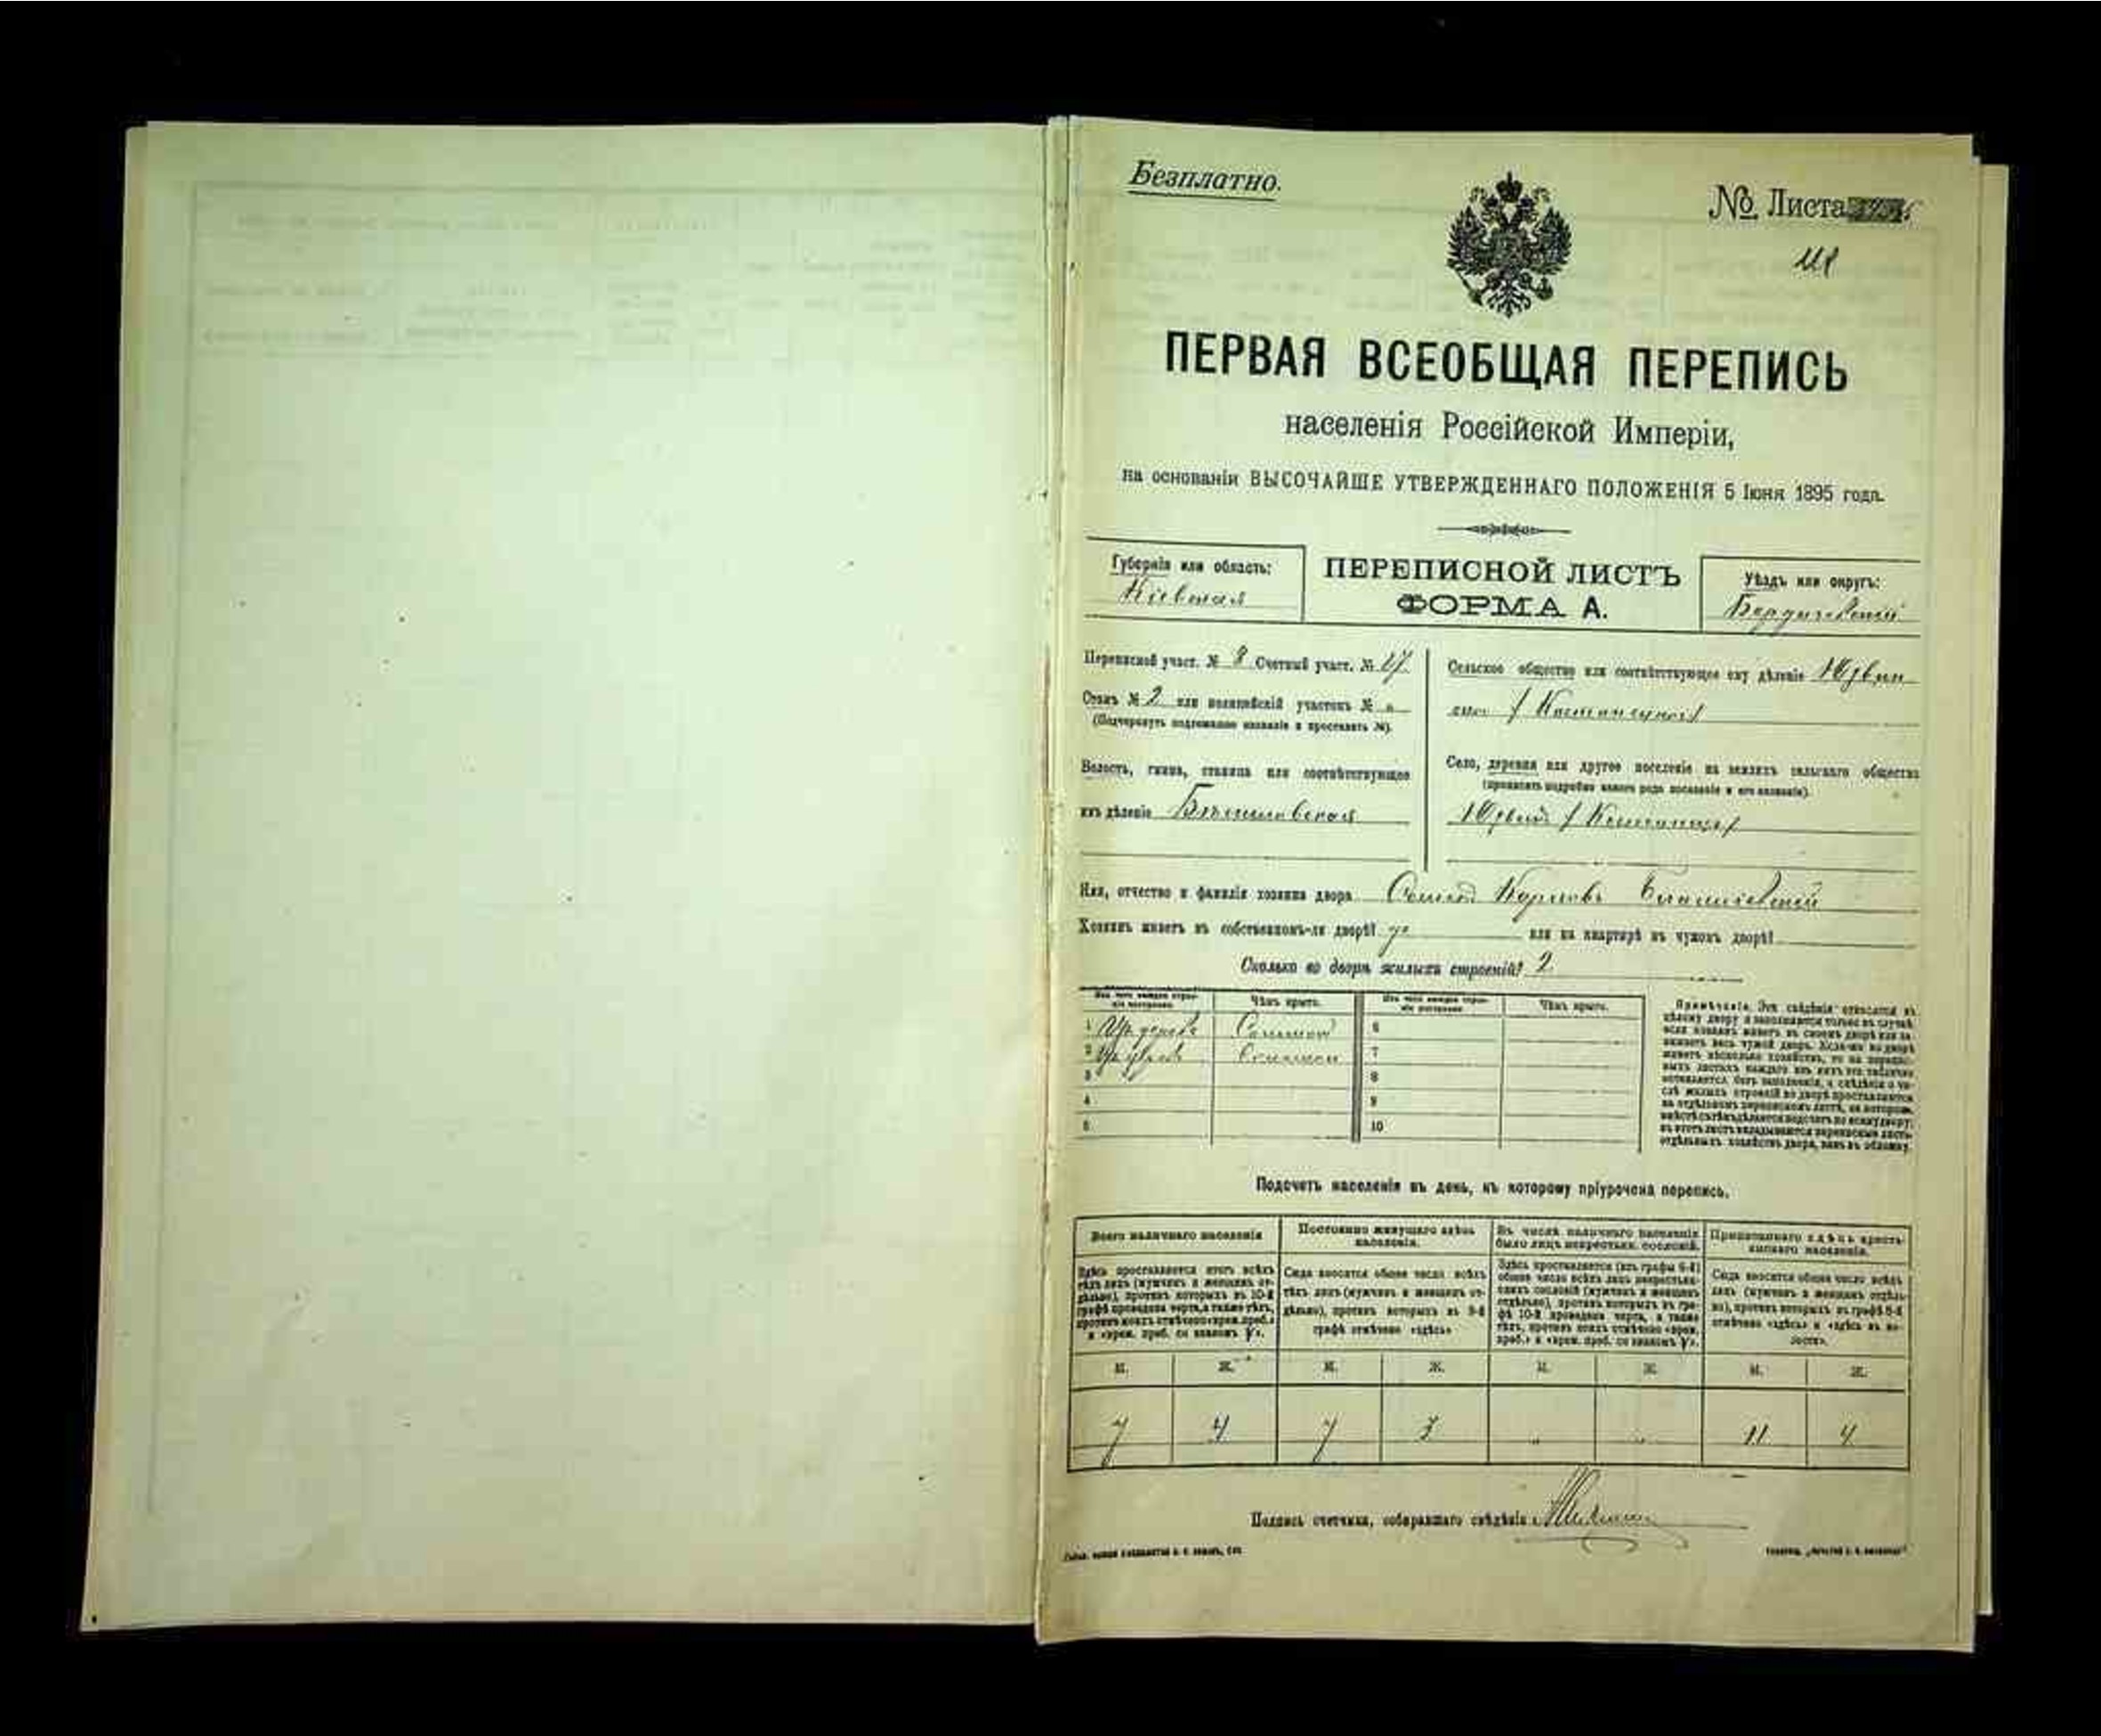 Безплатно.
№ Листа
118
ПЕРВАЯ ВСЕОБЩАЯ ПЕРЕПИСЬ
населенія Россійской Имперіи,
на основаніи ВЫСОЧАЙШЕ УТВЕРЖДЕННАГО ПОЛОЖЕНІЯ 5 Іюня 1895 года.
Губернія или область:
Кіевская
ПЕРЕПИСНОЙ ЛИСТЪ
ФОРМА А.
Уѣздъ или округъ:
Бердичевскій
Переписной участ. № 8 Счетный участ. № 17
Станъ № 2 или полицейскій участокъ № "
(Подчеркнуть подлежащее названіе и проставить №).
Волость, гмина, станица или соотвѣтствующее
имъ дѣленіе
Сельское общество или соотвѣтствующее ему дѣленіе
Село, деревня или другое поселеніе на земляхъ сельскаго общества
(прописать подробно какого рода поселеніе и его названіе).
Имя, отчество и фамилія хозяина двора
Хозяинъ живетъ въ собственномъ-ли дворѣ? или на квартирѣ въ чужомъ дворѣ?
Сколько во дворѣ жилыхъ строеній? 2
Изъ чего каждое строе-
ніе построено.
Чѣмъ крыто.
Изъ чего каждое строе-
ніе построено.
Чѣмъ крыто.
1 Изъ дерева Соломой 6
2 Соломой 7
3 8
4 9
5 10
Примѣчаніе. Эти свѣдѣнія относятся къ
цѣлому двору и заполняются только въ случаѣ,
если хозяинъ живетъ въ своемъ дворѣ или за-
нимаетъ весь чужой дворъ. Если-же во дворѣ
живетъ нѣсколько хозяйствъ, то на перепис-
ныхъ листахъ каждаго изъ нихъ эта табличка
оставляется безъ заполненія, а свѣдѣнія о чи-
слѣ жилыхъ строеній во дворѣ проставляются
на отдѣльномъ переписномъ листѣ, на которомъ
вмѣстѣ съ тѣмъ дѣлается подсчетъ по всему двору;
въ этотъ листъ вкладываются переписные листы
отдѣльныхъ хозяйствъ двора, какъ въ обложку.
Подсчетъ населенія въ день, къ которому пріурочена перепись.
Всего наличнаго населенія
Здѣсь проставляется итогъ всѣхъ
тѣхъ лицъ (мужчинъ и женщинъ от-
дѣльно), противъ которыхъ въ 10-й
графѣ проведена черта, а также тѣхъ,
противъ коихъ отмѣчено «врем. преб.»
и «врем. преб. со знакомъ V».
Постоянно живущаго здѣсь
населенія.
Сюда вносится общее число всѣхъ
тѣхъ лицъ (мужчинъ и женщинъ от-
дѣльно), противъ которыхъ въ 9-й
графѣ отмѣчено «здѣсь»
Въ числѣ наличнаго населенія
было лицъ некрестьян. сословій.
Здѣсь проставляется (изъ графы 6-й)
общее число всѣхъ лицъ некрестьян-
скихъ сословій (мужчинъ и женщинъ
отдѣльно), противъ которыхъ въ гра-
фѣ 10-й проведена черта, а также
тѣхъ, противъ коихъ отмѣчено «врем.
преб.» и «врем. преб. со знакомъ V».
Приписаннаго здѣсь кресть-
янскаго населенія.
Сюда вносится общее число всѣхъ
лицъ (мужчинъ и женщинъ отдѣль-
но), противъ которыхъ въ графѣ 8-й
отмѣчено «здѣсь» и «здѣсь въ во-
лости».
М. Ж. М. Ж. М. Ж. М. Ж.
7 4 7 3 " " 11 4
Подпись счетчика, собиравшаго свѣдѣнія